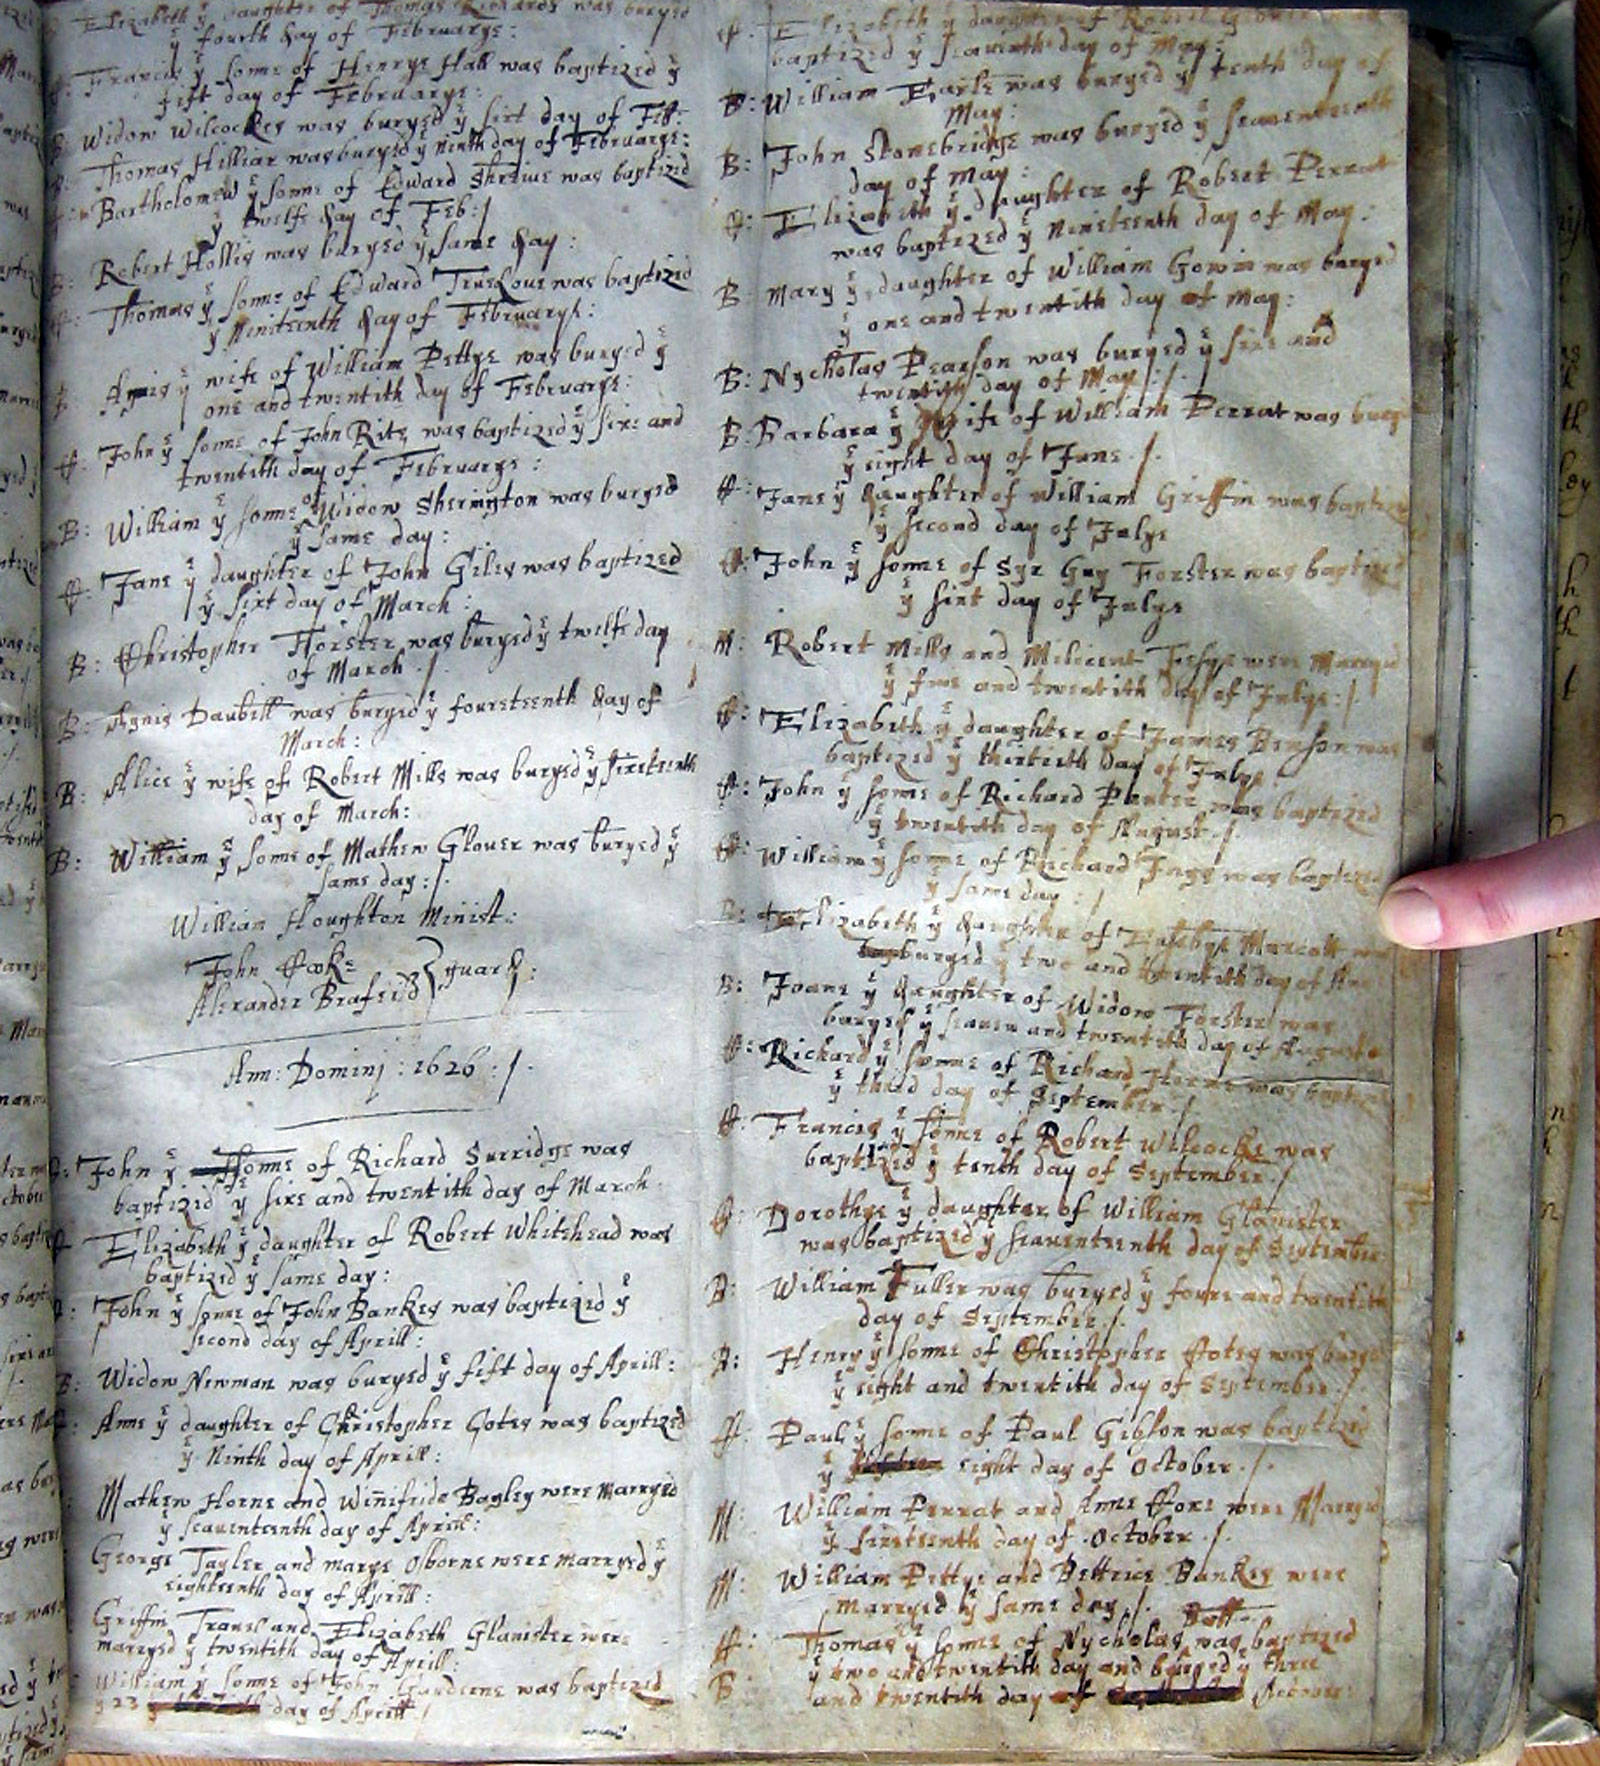 Elizabeth yͤ daughter of Thomas Rickards was buryed
yͤ fourth day of Februarye:
Francis yͤ sonne of Henrye Hall was baptized yͤ
fift day of Februarye:
B: Widow Wilcockes was buryed yͤ sixt day of Feb:
B: Thomas Hilliar was buryed yͤ Ninth day of Februarye:
Bartholomew yͤ sonne of Edward Shreiue was baptized
yͤ twelfe day of Feb:/
B: Robert Hollis was buryed yͤ same day:
Thomas yͤ sonne of Edward Truelove was baptized
yͤ Ninteenth day of Februarye:
B: Agnis yͤ wife of William Pettye was buryed yͤ
one and twentith day of Februarye:
C: John yͤ sonne of John Rite was baptized yͤ sixe and
twentith day of Februarye:
B: William yͤ sonne of Widow Sherington was buryed
yͤ same day:
C: Jane yͤ daughter of John Giles was baptized
yͤ sixt day of March:
B: Christopher Forster was buryed yͤ twelfe day
of March /.
B: Agnis Daubell was buryed yͤ fourteenth day of
March:
B: Alice yͤ wife of Robert Mills was buryed yͤ sixteenth
day of March:
B: William yͤ sonne of Mathew Glouer was buryed yͤ
same day:/.
William Houghton Minist:
John Cooke
Alexander Brafeild } guard:
Ann: Dominj: 1626:/.
C: John yͤ sonne of Richard Surridge was
baptized yͤ sixe and twentith day of March
Elizabeth yͤ daughter of Robert Whitehead was
baptized yͤ same day:
John yͤ sonne of John Bankes was baptized yͤ
second day of Aprill:
B: Widow Newman was buryed yͤ fift day of Aprill:
Anne yͤ daughter of Christopher Cotes was baptized
yͤ Ninth day of Aprill:
Mathew Horne and Winifride Bagley were Marryed
yͤ seauenteenth day of Aprill:
George Tayler and Marye Osborne were Marryed yͤ
eighteenth day of Aprill:
Griffin and Elizabeth Glanister were
marryed yͤ twentith day of Aprill:
William yͤ sonne of John Gardene was baptized
yͤ 23 day of Aprill /
C: Elizabeth yͤ daughter of Robert Glouer was
baptized yͤ seauenth day of May:
B: William Earle was buryed yͤ tenth day of
May:
B: John Stonebridge was buryed yͤ seauenteenth
day of May:
C: Elizabeth yͤ daughter of Robert Perrat
was baptized yͤ Nineteenth day of May:
B: Mary yͤ daughter of William Gowin was buryed
yͤ one and twentith day of May:
B: Nycholas Pearson was buryed yͤ sixe and
twentith day of May:/.
B: Barbara yͤ Wife of William Perrat was bury
yͤ eight day of June./.
C: Jane yͤ daughter of William Griffin was baptized
yͤ second day of Julye
C: John yͤ sonne of Syr Guy Forster was baptized
yͤ sixt day of Julye
M: Robert Mills and Milicent were Marryed
yͤ fiue and twentith day of Julye:/.
C: Elizabeth yͤ daughter of James Benson was
baptized yͤ thirtieth day of Julye:
C: John yͤ sonne of Richard Panter was baptized
yͤ twentith day of August./.
C: William yͤ sonne of Richard Inge was baptized
yͤ same day:/
B: Elizabeth yͤ daughter of Eusebye Marcott was
buryed yͤ two and twentith day of Aug
B: Joane yͤ daughter of Widow Forster was
buryed yͤ seauen and twentith day of August
C: Richard yͤ sonne of Richard Horne was baptized
yͤ third day of September./
C: Francis yͤ sonne of Robert Wilcocke was
baptized yͤ tenth day of September./
C: Dorothye yͤ daughter of William Glanister
was baptized yͤ seauenteenth day of September
B: William Fuller was buryed yͤ foure and twentith
day of September./.
B: Henry yͤ sonne of Christopher Cotes was buryed
yͤ eight and twentith day of September./.
C: Paul yͤ sonne of Paul Gibson was baptized
yͤ eight day of October./.
M: William Perrat and Anne Coxe were Marryed
yͤ sixteenth day of October./.
M: William Pettye and Bettrice Bankes were
marryed yͤ same day./.
C: Thomas yͤ sonne of Nycholas was baptized
yͤ two and twentith day and buryed yͤ three
B: and twentith day of October: